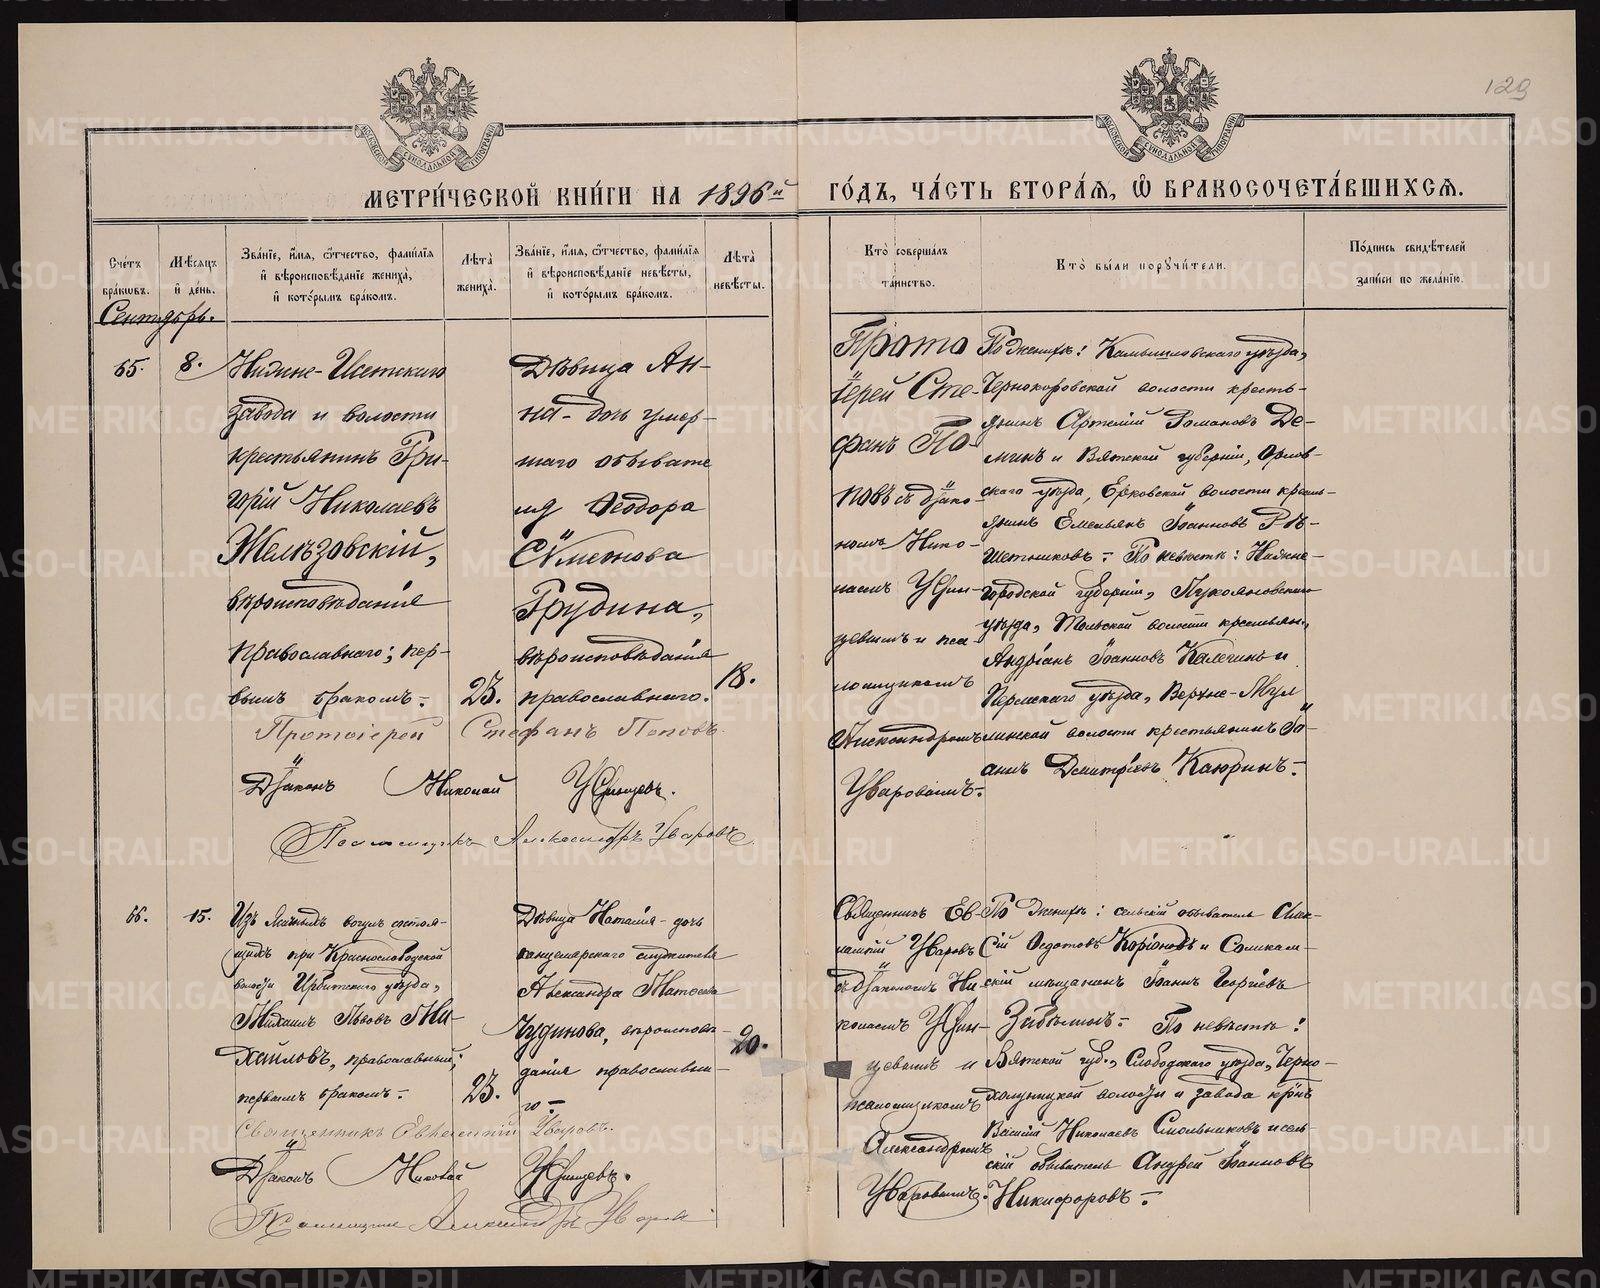 129
МЕТРИ́ЧЕСКОЙ КНИ́ГИ НА 1896й ГО́ДЪ, ЧА́СТЬ ВТОРА́Ѧ, Ѡ҆ БРАКОСОЧЕТА́ВШИХСѦ.
Сче́тъ бра́кѡвъ.
Мѣ́сѧцъ и҆ де́нь.
Зва́нїе, и҆́мѧ, ѻ҆́тчество, фами́лїѧ и҆ вѣроисповѣ́данїе жениха̀, и҆ кото́рымъ бра́комъ.
Лѣ́та жениха̀.
Зва́нїе, и҆́мѧ, ѻ҆́тчество, фами́лїѧ и҆ вѣроисповѣ́данїе невѣ́сты, и҆ кото́рымъ бра́комъ.
Лѣ́та невѣ́сты.
Кто̀ соверша́лъ та́инство.
Кто̀ бы́ли порꙋчи́тели.
По́дпись свидѣ́телей за́писи по жела́нїю.
Сентябрь.
65.
8.
Нижне-Исетскаго
завода и волости
крестьянинъ Гри-
горій Николаевъ
Желѣзовскій,
вѣроисповѣданія
православнаго; пер-
вымъ бракомъ.-
23.
Дѣвица Ан-
на-дочь умер-
шаго обывате
ля Ѳеодора
Сѵмеонова
Грудина,
вѣроисповѣданія
православнаго.
18.
Прото
іерей Сте-
фанъ По-
повъ съ діако-
номъ Нико-
лаемъ
и пса-
ломщикомъ
Александромъ
Уваровымъ.-
По женихѣ: Камышловскаго уѣзда,
Чернокоровской волости кресть-
янинъ Артемій Романовъ Де-
минъ и Вятской губерніи, Орлов-
скаго уѣзда, волости кресть-
янинъ Емельянъ Іоанновъ Рѣ-
шетниковъ.- По невѣстѣ: Нижне-
городской губерніи, Лукояновскаго
уѣзда, волости крестьян.,
Андріанъ Іоанновъ Калегинъ и
Пермскаго уѣзда, Верхне-Мул
линской волости крестьянинъ Іо-
аннъ Димитріевъ Каюринъ.-
Протоіерей Стефанъ Поповъ.
Діаконъ Николай
Псаломщикъ Александръ Уваровъ
66.
15.
Изъ ясачныхъ вогулъ состоя-
щихъ при Краснослободской
волости Ирбитскаго уѣзда,
Михаилъ Львовъ Ми-
хайловъ, православный;
первымъ бракомъ.-
23.
Дѣвица Наталія-дочь
канцелярскаго служителя
Александра Матѳеева
Чудинова, вѣроисповѣ-
данія православна-
го.-
20.
Священникъ Ев-
Уваровъ
съ діакономъ Ни-
колаемъ
и
псаломщикомъ
Александромъ
Уваровымъ.
По женихѣ: сельскій обыватель Алек-
сій Ѳедотовъ Коріоновъ и Соликам-
скій мѣщанинъ Іоаннъ Георгіевъ
По невѣстѣ:
Вятской губ., Слободскаго уѣзда, Черно-
холуницкой волости и завода
Василій Николаевъ Смольниковъ и сель-
скій обыватель Андрей Іоанновъ
Никифоровъ.-
Священникъ Уваровъ.
Діаконъ Николай
Псаломщикъ Александръ Уваровъ